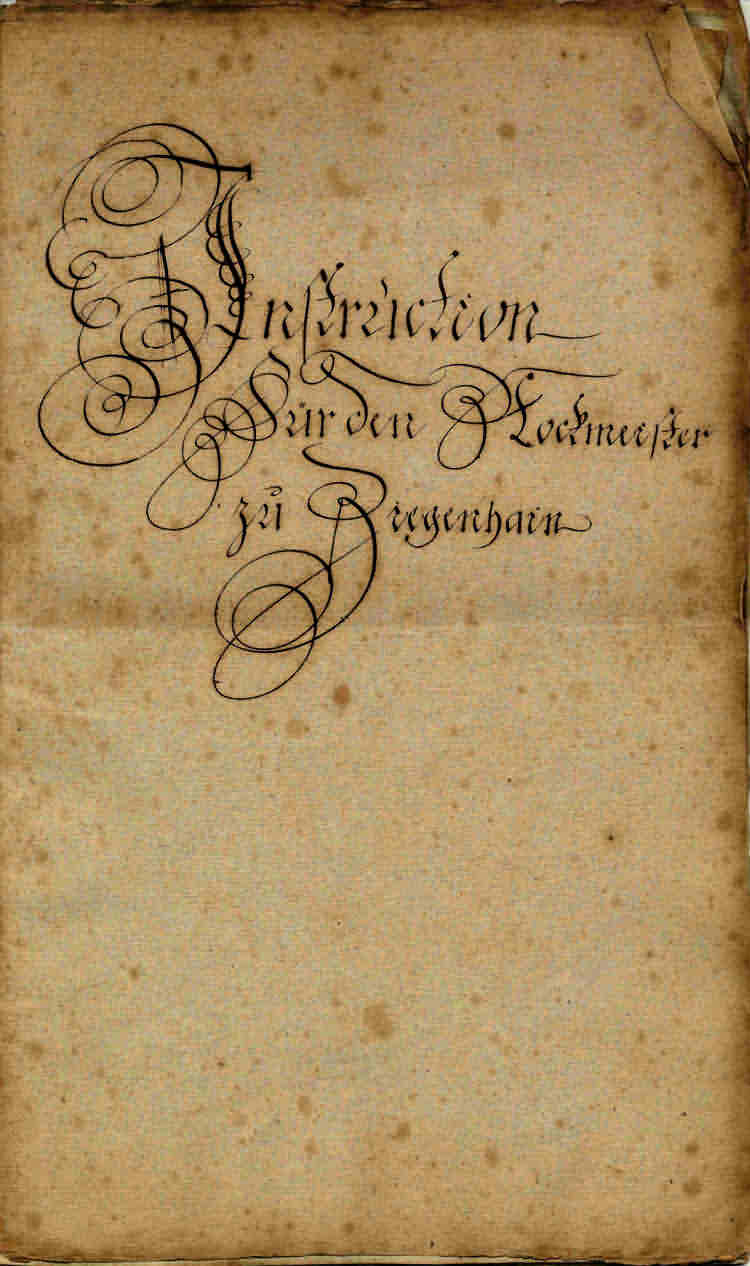 Instruction
Für den Stockmeister
zu Ziegenhain